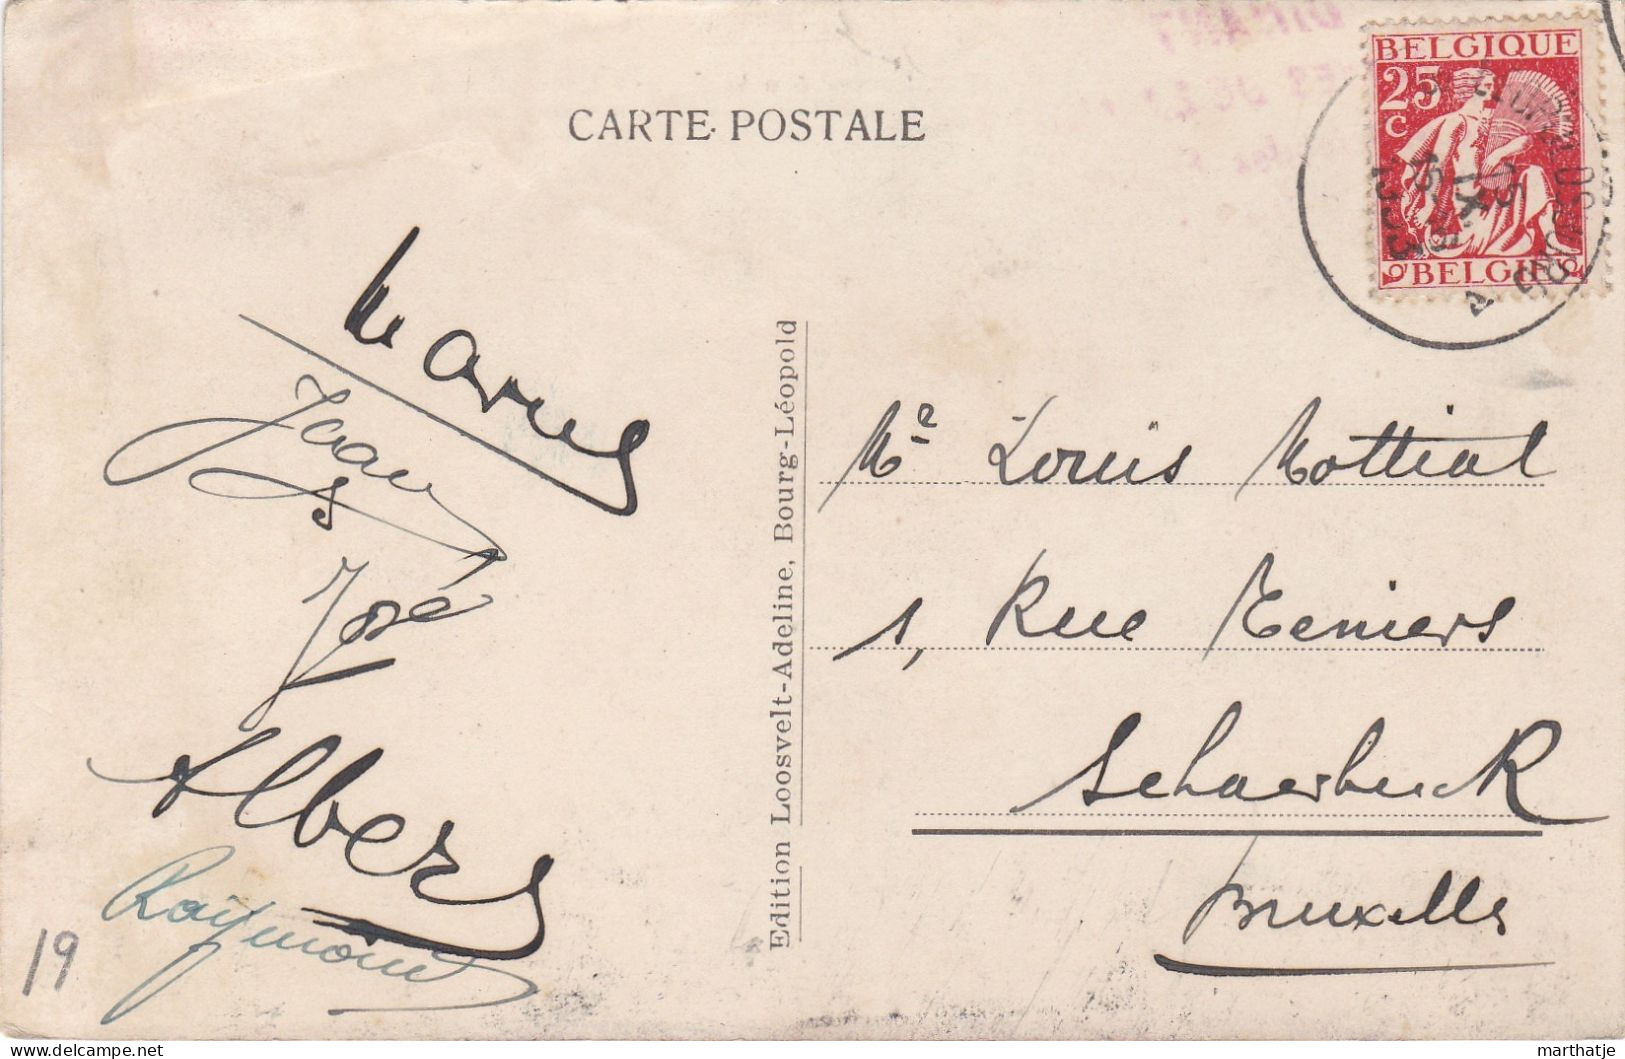 DINANT
CARTE POSTALE
BELGIQUE
25
C
BELGIË
15
IX
1933
Marcel
Jean
José
Albert
Raymond
19
Edition Loosvelt-Adeline, Bourg-Léopold
Mr Louis Mottiat
1, Rue Teniers
Schaerbeek
Bruxelles
marthatje